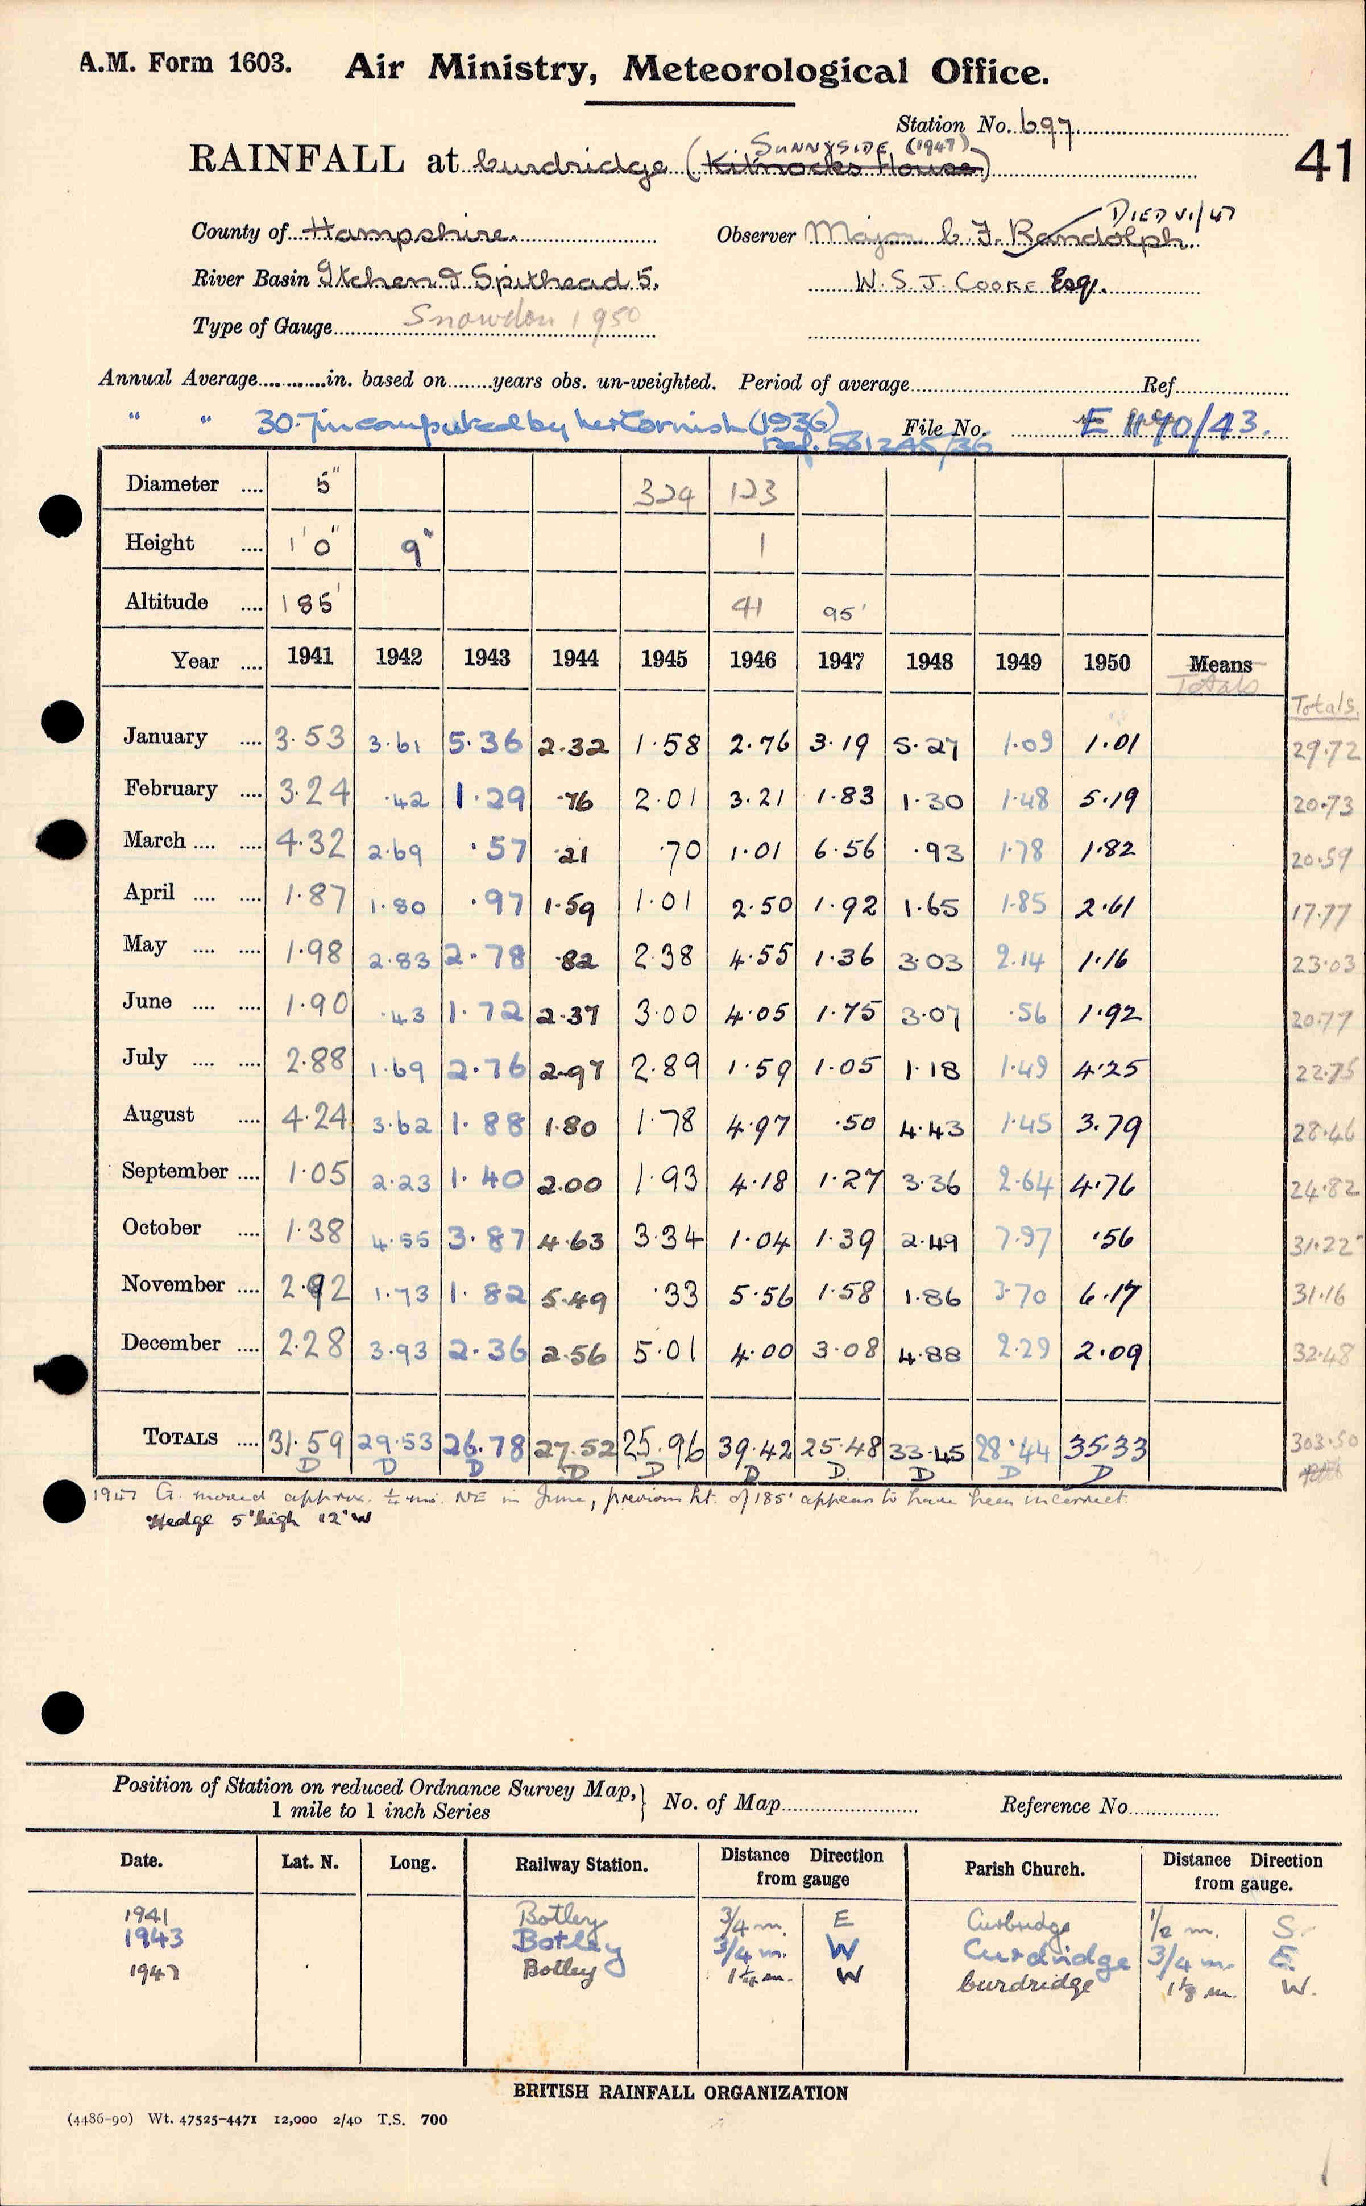 A.M. Form 1603. Air Ministry, Meteorological Office.
Station No. 697
41
SUNNYSIDE (1947)
RAINFALL at Curdridge (Kilnocks House)
DIED VI/47
County of Hampshire. Observer Major C. F. Randolph
River Basin Itchen & Spithead 5. W. S. J. COOKE Esq.
Type of Gauge Snowdon 1950
Annual Average in. based on years obs. un-weighted. Period of average Ref
" " 30.7 in computed by (1936) File No. E 1190/43.
Ref. 561245/36
Diameter 5" 324 123
Height 1'0" 9" 1
Altitude 185' 41 95'
Year 1941 1942 1943 1944 1945 1946 1947 1948 1949 1950 Means
Totals
Totals.
January 3.53 3.61 5.36 2.32 1.58 2.76 3.19 5.27 1.09 1.01 29.72
February 3.24 .42 1.29 .76 2.01 3.21 1.83 1.30 1.48 5.19 20.73
March 4.32 2.69 .57 .21 .70 1.01 6.56 .93 1.78 1.82 20.59
April 1.87 1.80 .97 1.59 1.01 2.50 1.92 1.65 1.85 2.61 17.77
May 1.98 2.83 2.78 .82 2.38 4.55 1.36 3.03 2.14 1.16 23.03
June 1.90 .43 1.72 2.37 3.00 4.05 1.75 3.07 .56 1.92 20.77
July 2.88 1.69 2.76 2.97 2.89 1.59 1.05 1.18 1.49 4.25 22.75
August 4.24 3.62 1.88 1.80 1.78 4.97 .50 4.43 1.45 3.79 28.46
September 1.05 2.23 1.40 2.00 1.93 4.18 1.27 3.36 2.64 4.76 24.82
October 1.38 4.55 3.87 4.63 3.34 1.04 1.39 2.49 7.97 .56 31.22
November 2.92 1.73 1.82 5.49 .33 5.56 1.58 1.86 3.70 6.17 31.16
December 2.28 3.93 2.36 2.56 5.01 4.00 3.08 4.88 2.29 2.09 32.48
TOTALS 31.59 29.53 26.78 27.52 25.96 39.42 25.48 33.45 28.44 35.33 303.50
D D D D D D D. D D D
1947 G. moved approx. ¼ mi. NE in June, previous ht. of 185' appears to have been incorrect.
Hedge 5' high 12' W
Position of Station on reduced Ordnance Survey Map,
1 mile to 1 inch Series } No. of Map Reference No.
Date. Lat. N. Long. Railway Station. Distance Direction from gauge Parish Church. Distance Direction from gauge.
1941 Botley 3/4 m. E Curbridge 1/2 m. S.
1943 Botley 3/4 m. W Curdridge 3/4 m. E.
1947 Botley 1¼ m. W Curdridge 1⅛ m. W.
BRITISH RAINFALL ORGANIZATION
(4486-90) Wt. 47525-4471 12,000 2/40 T.S. 700